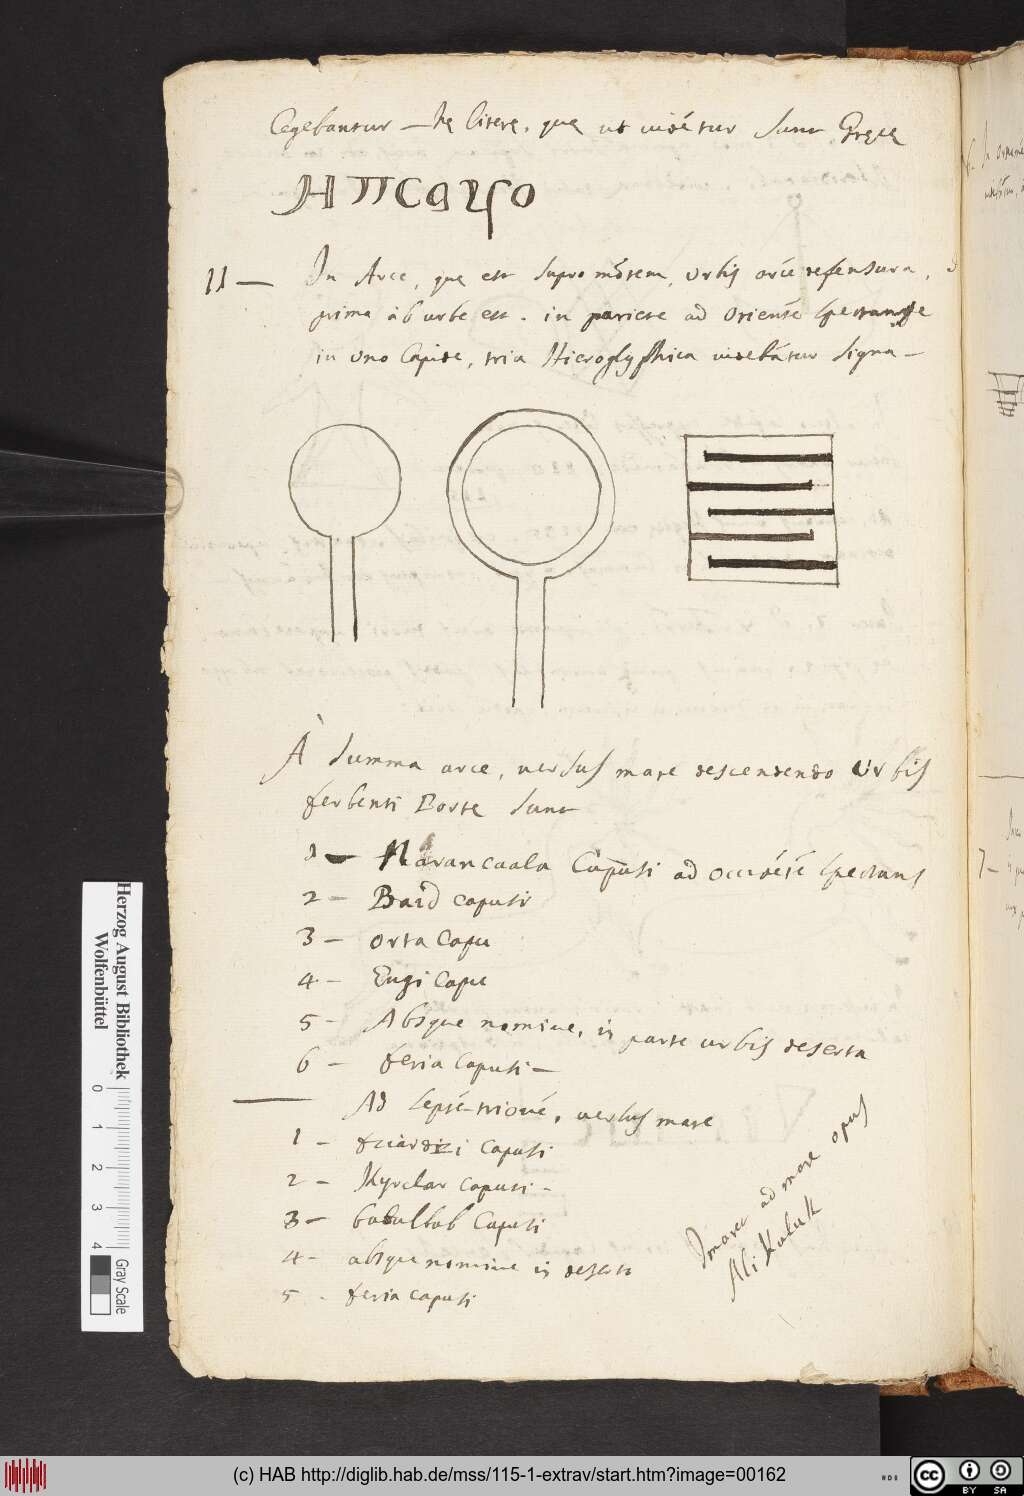 Legebantur – he litere, que ut vidétur sunt Gręce
НПСАЧО
11 — In Arce, que est supra mõtem, urbis orie defensura,
prima ab urbe est. in pariete ad orienté spectante
in uno lapide, tria Hieroglyphica videbãtur signa –
À summa arce, versus mare descendendo urbis
derbenti Porte sunt
1 – Narancaala Capusi ad occidété spectans
2 – Baid capusi
3 – orta Capu
4 – Engi Capu
5 – Absque nomine, in parte urbis deserta
6 – feria capusi –
Ad septé-trioné, versus mare
1 – capusi
2 – Kyrclar capusi –
3 – Capusi
4 – absque nomine in deserta
5 – feria capusi
ad mare opus
Ali Kuluk
Herzog August Bibliothek
Wolfenbüttel
0 1 2 3 4
Gray Scale
(c) HAB http://diglib.hab.de/mss/115-1-extrav/start.htm?image=00162
cc BY SA